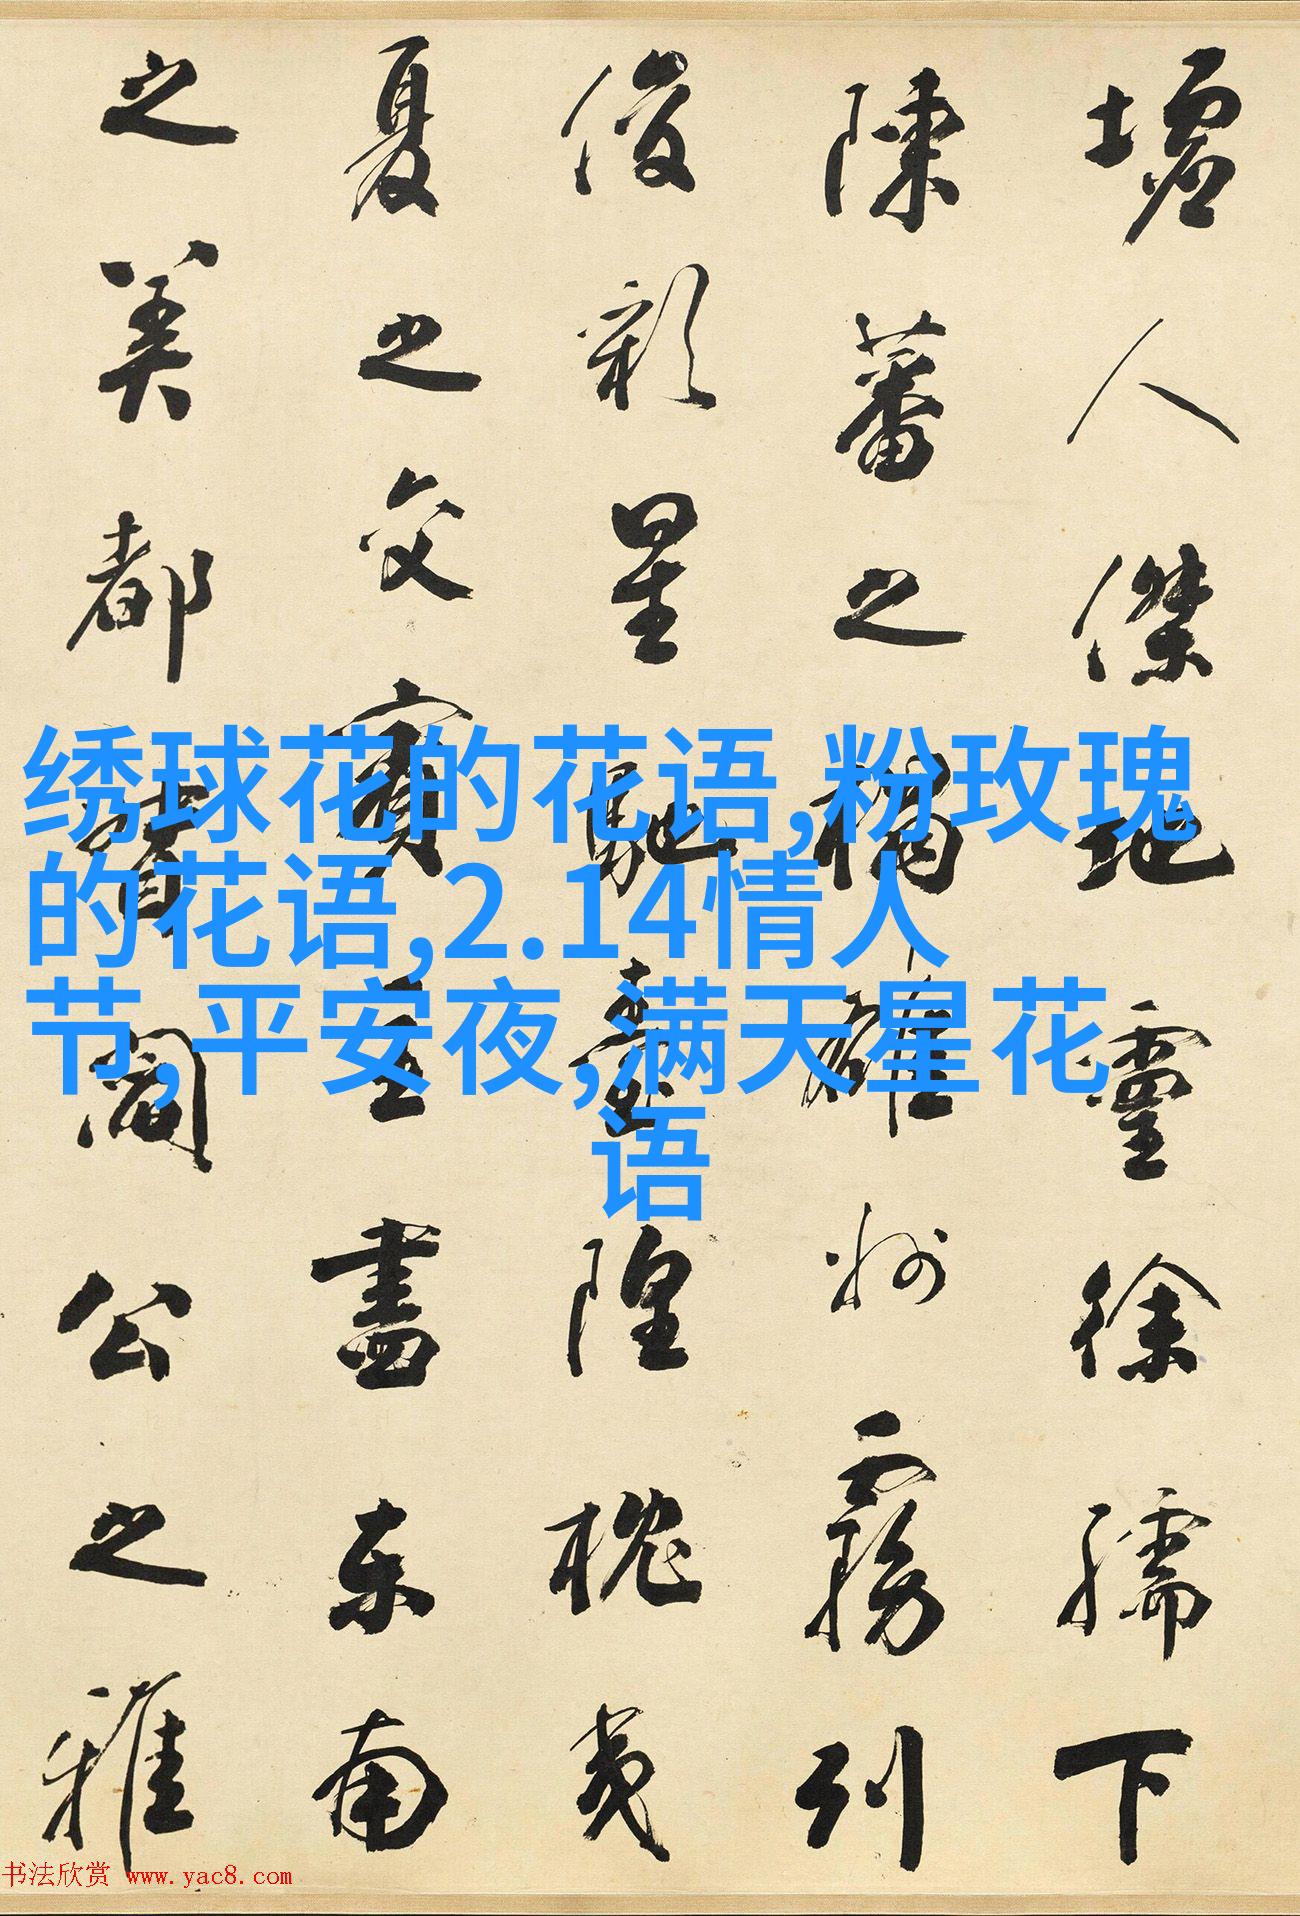 墟人傑地靈徐孺下
陳蕃之榻雄州霧列
俊彩星馳臺隍枕夷
夏之交賓主盡東南
之美都督閻公之雅
绣球花的花语,粉玫瑰
的花语,2.14情人
节,平安夜,满天星花
语
书法欣赏 www.yac8.com